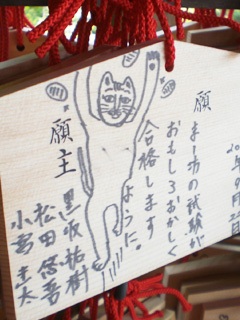 20 年9月 日
願
の試験が
おもしろおかしく
合格します
ように。
願主
黒坂祐樹
松田悠吾
小宮圭太